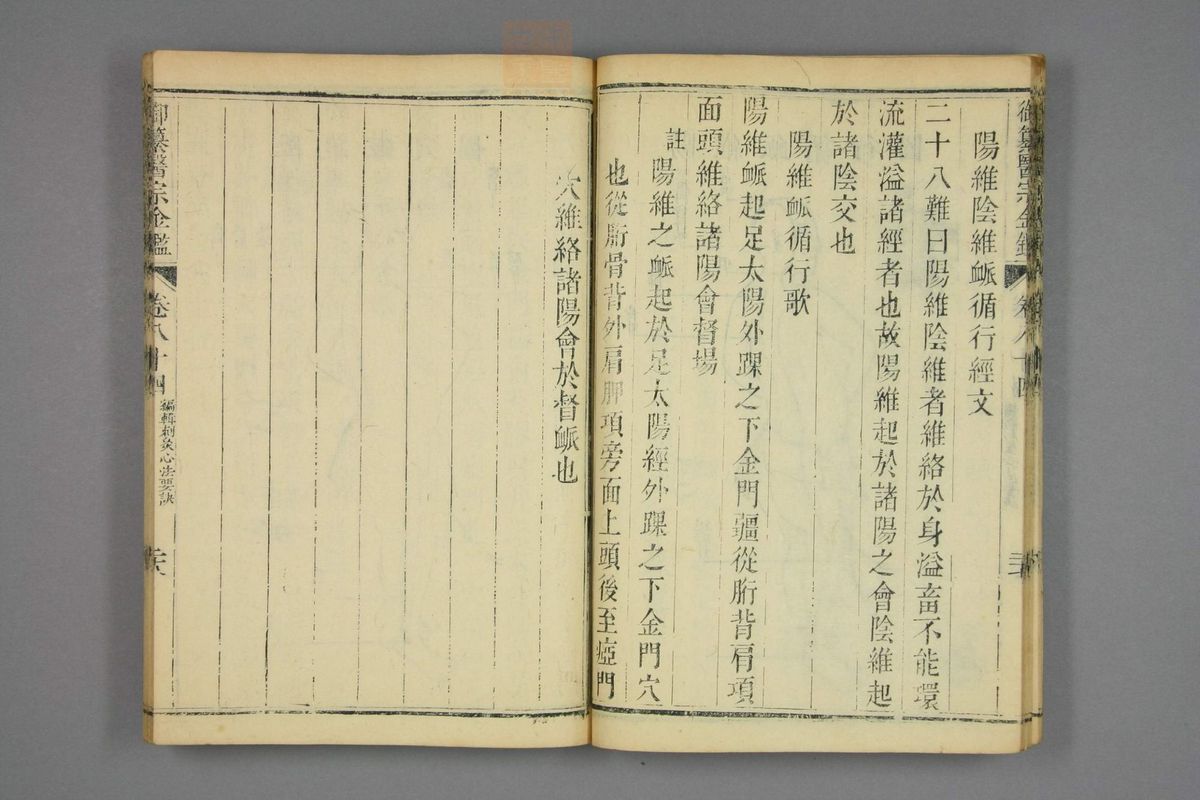 御纂醫宗金鑑
陽維陰維䘑循行經文
二十八難曰陽維陰維者維絡於身溢畜不能環
流灌溢諸經者也故陽維起於諸陽之會陰維起
於諸陰交也
陽維䘑循行歌
陽維䘑起足太陽外踝之下金門疆從胻背肩項
面頭維絡諸陽會督場
註陽維之䘑起於足太陽經外踝之下金門穴
也從胻骨背外肩胛項旁面上頭後至瘂門
穴維絡諸陽會於督䘑也
御纂醫宗金鑑
卷八十四
編輯刺灸心法要訣